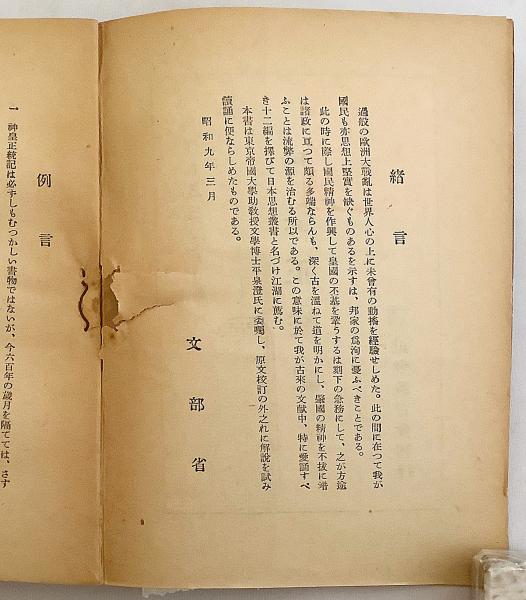 緒言
過般の歐洲大戰亂は世界人心の上に未曾有の動搖を經驗せしめた。此の間に在つて我が
國民も亦思想上堅實を缺ぐものあるを示すは、邦家の爲洵に憂ふべきことである。
此の時に際し國民精神を作興して皇國の丕基を鞏うするは刻下の急務にして、之が方途
は諸政に亙つて頗る多端ならんも、深く古を溫ねて道を明かにし、肇國の精神を不拔に培
ふことは流弊の源を治むる所以である。この意味に於て我が古來の文献中、特に愛誦すべ
き十二編を擇びて日本思想叢書と名づけ江湖に薦む。
本書は東京帝國大學助敎授文學博士平泉澄氏に委囑し、原文校訂の外之れに解說を試み
讀誦に便ならしめたものである。
昭和九年三月
文部省
例言
一 神皇正統記は必ずしもむつかしい書物ではないが、今六百年の歲月を隔てては、さす